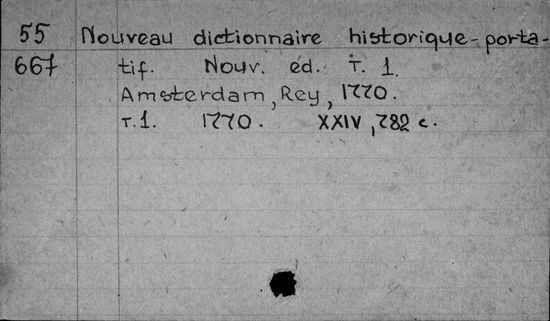 55 Nouveau dictionnaire historique-porta-
667 tif. Nouv. éd. T. 1.
Amsterdam, Rey, 1770.
т.1. 1770. XXIV, 782 с.